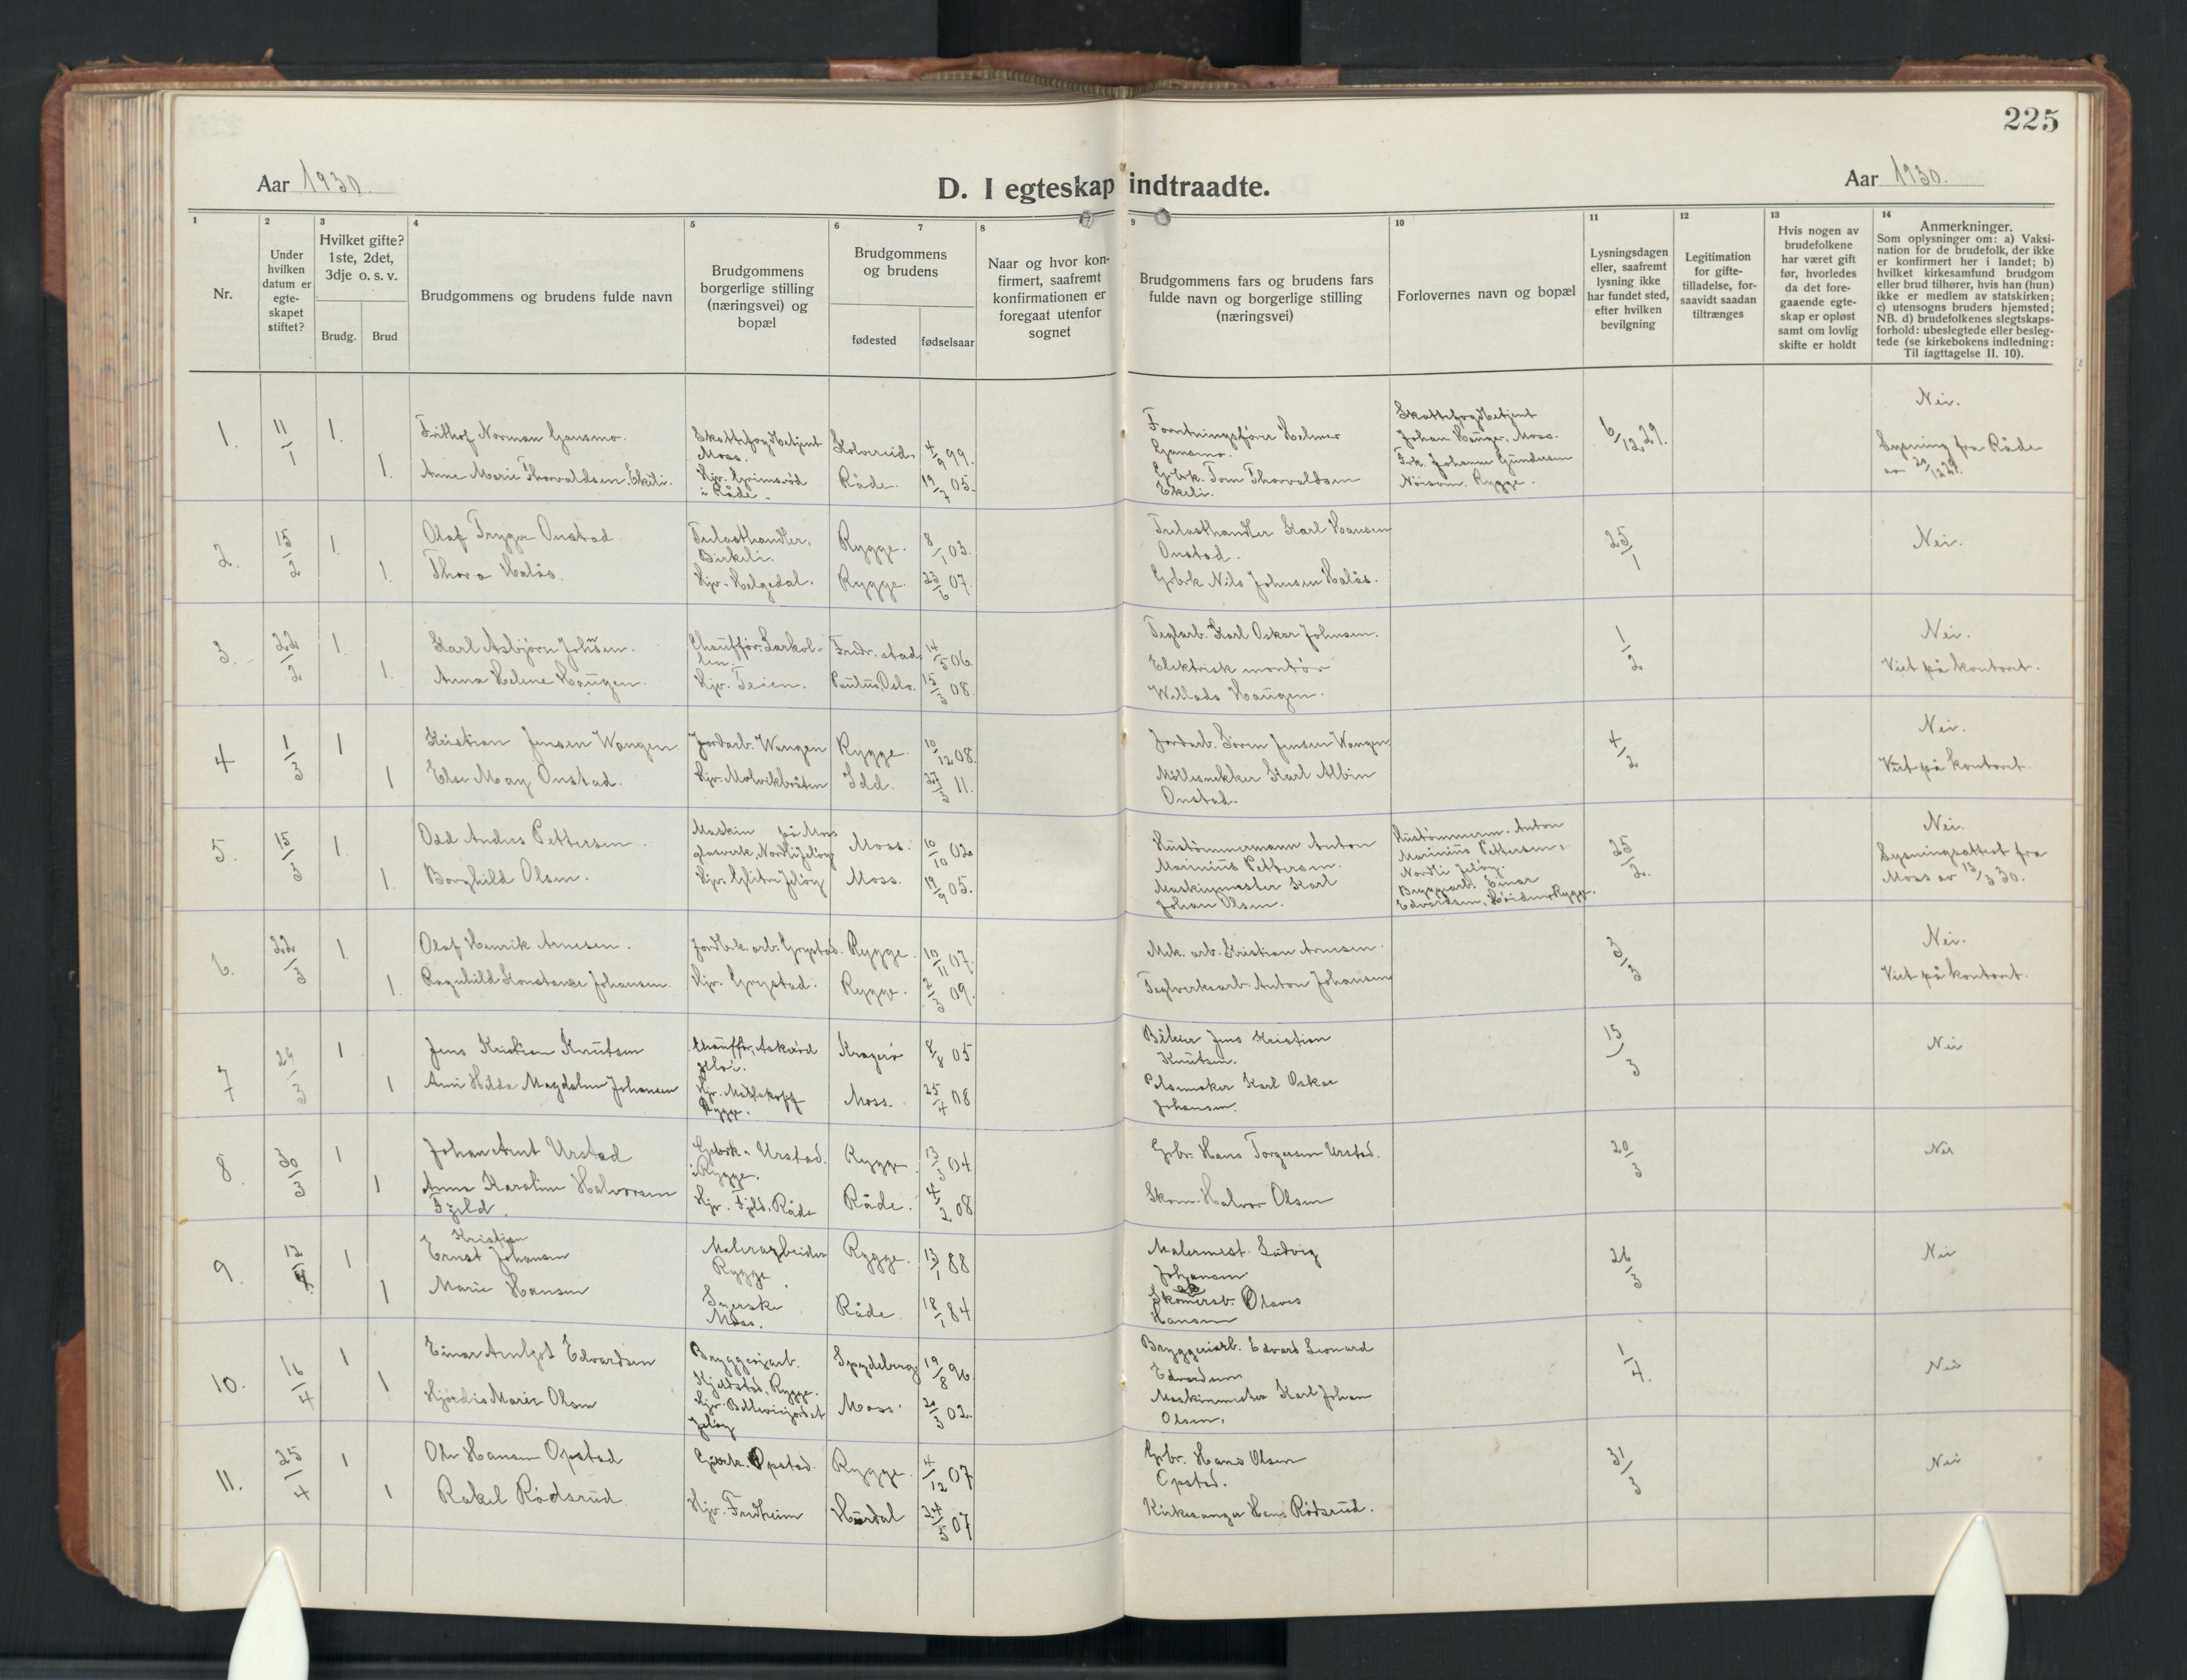 225
Aar 1930.
D. I egteskap indtraadte.
Aar 1930.
1 2 3 4 5 6 7 8 9 10 11 12 13 14
Nr.
Under hvilken datum er egte-skapet stiftet?
Hvilket gifte? 1ste, 2det, 3dje o. s. v.
Brudg. Brud
Brudgommens og brudens fulde navn
Brudgommens borgerlige stilling (næringsvei) og bopæl
Brudgommens og brudens
fødested fødselsaar
Naar og hvor kon-firmert, saafremt konfirmationen er foregaat utenfor sognet
Brudgommens fars og brudens fars fulde navn og borgerlige stilling (næringsvei)
Forlovernes navn og bopæl
Lysningsdagen eller, saafremt lysning ikke har fundet sted, efter hvilken bevilgning
Legitimation for gifte-tilladelse, for-saavidt saadan tiltrænges
Hvis nogen av brudefolkene har været gift før, hvorledes da det fore-gaaende egte-skap er opløst samt om lovlig skifte er holdt
Anmerkninger.
Som oplysninger om: a) Vaksi-nation for de brudefolk, der ikke er konfirmert her i landet; b) hvilket kirkesamfund brudgom eller brud tilhører, hvis han (hun) ikke er medlem av statskirken; c) utensogns bruders hjemsted; NB. d) brudefolkenes slegtskaps-forhold: ubeslegtede eller besleg-tede (se kirkebokens indledning: Til iagttagelse II. 10).
1. 11/1 1. Frithof Norman Gansmo. Skattefogdbetjent Moss. Kolvereid. 4/9 99. Forretningsfører Helmer Gansmo. Skattefogdbetjent Johan Hauger, Moss. 6/12 29. Nei.
1. Anne Marie Thorvaldsen Ekeli. Hjv. Grimsrød i Råde. Råde. 19/7 05. Gbrk. Tom Thorvaldsen Ekeli. Frk. Johanne Gundersen Nøisom, Rygge. Lysning fra Råde av 20/12 29.
2. 15/2 1. Olaf Trygve Onstad. Trelasthandler, Birkeli. Rygge. 8/1 03. Trelasthandler Karl Hansen Onstad. 25/1 Nei.
1. Thora Halås. Hjv. Helgedal. Rygge. 23/6 07. Gbrk Nils Johnsen Halås.
3. 22/2 1. Karl Asbjørn Johnsen. Chauffør. Larkollen. Fredr.stad. 14/5 06. Teglarb. Karl Oskar Johnsen. 1/2 Nei.
1. Anna Helene Haugen. Hjv. Teien. Paulus, Oslo. 15/3 08. Elektrisk montør Willads Haugen. Viet på kontoret.
4 1/3 1 Kristian Jensen Wangen. Jordarb. Wangen Rygge. 10/12 08. Jordarb. Sören Jensen Wangen. 4/2 Nei.
1 Else May Onstad. Hjv. Molvikbråten Idd. 27/3 11. Möllesnekker Karl Albin Onstad. Viet på kontoret.
5. 15/3 1. Odd Andres Pettersen. Maskin på Moss glasverk, Nordli Jeløy Moss. 10/10 02. Hustømmermann Anton Marinius Pettersen. Hustømmerm. Anton Marinius Pettersen, Nordli Jeløy. 25/2. Nei.
1. Borghild Olsen. Hjv. Glitre Jeløy Moss. 19/9 05. Maskinmester Karl Johan Olsen. Bryggarb. Einar Edvardsen, Høiden, Rygge. Lysningsattest fra Moss av 13/3 30.
6. 22/3 1 Olaf Henrik Arnesen. Jordbrk. arb. Grystad. Rygge. 10/11 07. Mek. arb. Kristian Arnesen. 3/3 Nei.
1. Ragnhild Konstanse Johansen. Hjv. Grystad. Rygge. 2/3 09. Teglverksarb. Anton Johansen Viet på kontoret.
7 29/3 1 Jens Kristian Knutsen Chauffør, Askvård Jeløi. Kragerø 8/8 05 Bøkker Jens Kristian Knutsen. 15/3 Nei
1 Ani Hilda Magdalene Johansen Hjv. Malakoff Rygge. Moss. 25/4 08 Pølsemaker Karl Oskar Johansen.
8. 30/3 1 Johan Arnt Urstad Gbrk. Urstad i Rygge. Rygge. 13/3 04. Gbr. Hans Torgersen Urstad. 20/3 Nei
1 Anna Karoline Halvorsen Fjeld. Hjv. Fjeld, Råde Råde. 4/2 08 Skom. Halvor Olsen
9. 12/4 1 Ernst Kristian Johansen Malerarbeider Rygge. Rygge. 13/1 88 Malermest. Ludvig Johansen 26/3 Nei
1 Marie Hansen Syerske Moss. Råde. 18/1 84 Olaves Hansen
10. 16/4 1 Einar Arnljot Edvardsen Bryggeriarb. Kjeldstad, Rygge. Spydeberg 19/8 96. Bryggeriarb. Edvard Leonard Edvardsen 1/4. Nei
1 Hjørdis Marie Olsen Hjv. Bellevuejordet Jeløy Moss. 20/3 02. Maskinmester Karl Johan Olsen.
11. 25/4 1 Ole Hansen Opstad Gbrk. Opstad. Rygge. 4/12 07 Gbr. Hans Olsen Opstad. 31/3 Nei
1 Rakel Rødsrud. Hjv. Fredheim Hurdal 24/5 07 Kirkesanger Hans Rødsrud.